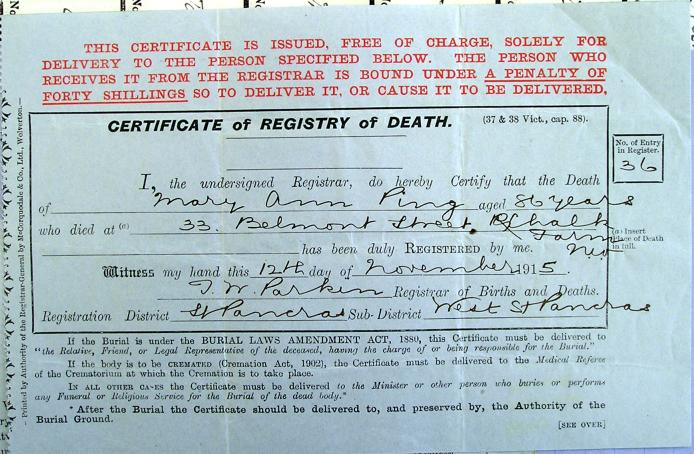 THIS CERTIFICATE IS ISSUED, FREE OF CHARGE, SOLELY FOR
DELIVERY TO THE PERSON SPECIFIED BELOW. THE PERSON WHO
RECEIVES IT FROM THE REGISTRAR IS BOUND UNDER A PENALTY OF
FORTY SHILLINGS SO TO DELIVER IT, OR CAUSE IT TO BE DELIVERED.
CERTIFICATE of REGISTRY of DEATH. (37 & 38 Vict., cap. 88).
No. of Entry
in Register.
36
I, the undersigned Registrar, do hereby Certify that the Death
of Mary Ann Ping aged 86 years
who died at (a) 33. Belmont Street, Chalk
Farm
(a) Insert
Place of Death
in full.
has been duly REGISTERED by me.
Witness my hand this 12th day of November 1915.
T. W. Parken Registrar of Births and Deaths.
Registration District St Pancras Sub-District West St Pancras
If the Burial is under the BURIAL LAWS AMENDMENT ACT, 1880, this Certificate must be delivered to
"the Relative, Friend, or Legal Representative of the deceased, having the charge of or being responsible for the Burial."
If the body is to be CREMATED (Cremation Act, 1902), the Certificate must be delivered to the Medical Referee
of the Crematorium at which the Cremation is to take place.
IN ALL OTHER CASES the Certificate must be delivered to the Minister or other person who buries or performs
any Funeral or Religious Service for the Burial of the dead body."
* After the Burial the Certificate should be delivered to, and preserved by, the Authority of the
Burial Ground.
[SEE OVER]
—Printed by Authority of the Registrar-General by McCorquodale & Co., Ltd., Wolverton.—